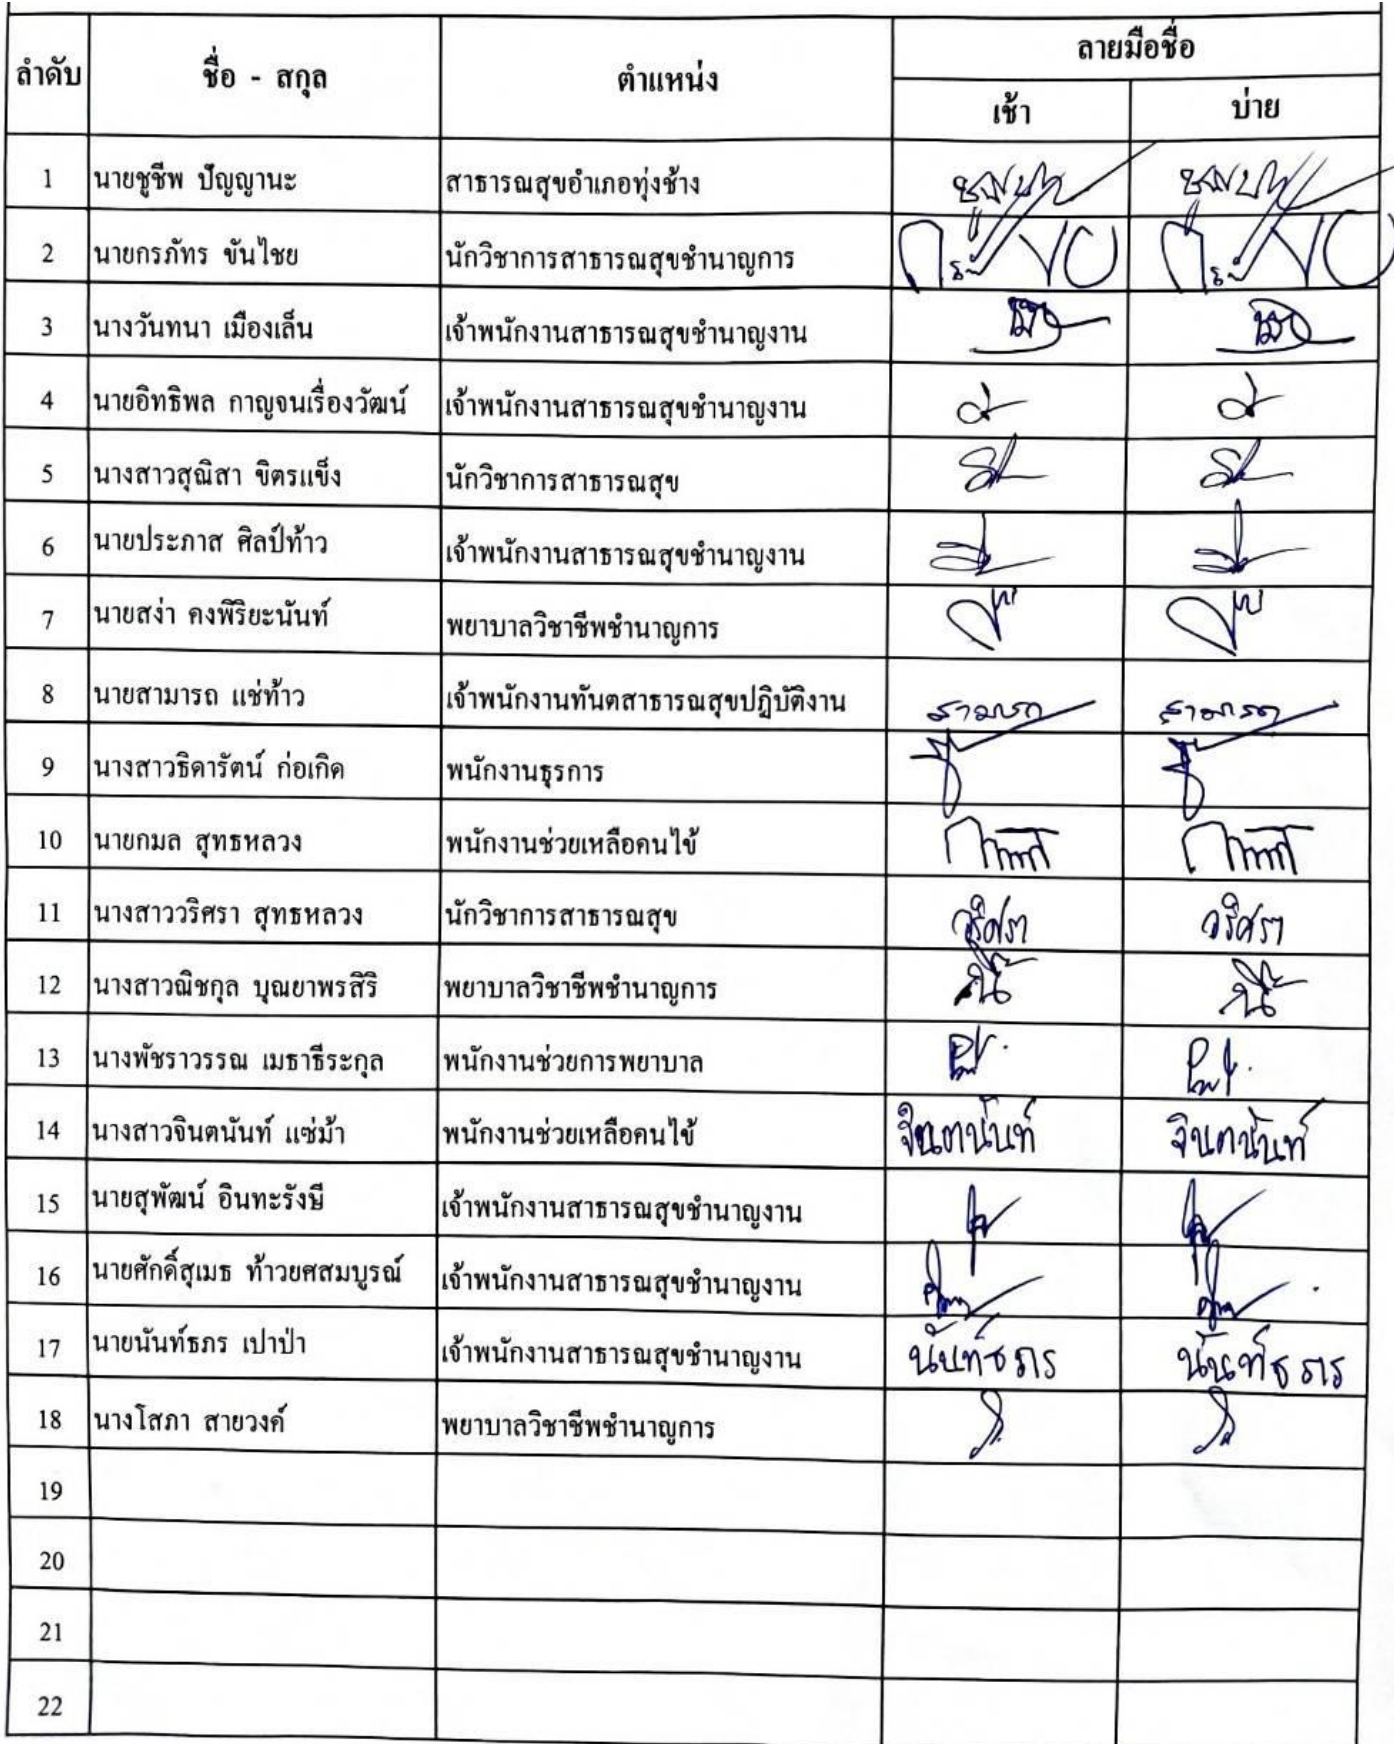 ลำดับ ชื่อ - สกุล ตำแหน่ง ลายมือชื่อ
เช้า บ่าย
1 นายชูชีพ ปัญญานะ สาธารณสุขอำเภอทุ่งช้าง
2 นายกรภัทร ขันไชย นักวิชาการสาธารณสุขชำนาญการ
3 นางวันทนา เมืองเล็น เจ้าพนักงานสาธารณสุขชำนาญงาน
4 นายอิทธิพล กาญจนเรื่องวัฒน์ เจ้าพนักงานสาธารณสุขชำนาญงาน
5 นางสาวสุณิสา ขิตรแข็ง นักวิชาการสาธารณสุข
6 นายประภาส ศิลป์ท้าว เจ้าพนักงานสาธารณสุขชำนาญงาน
7 นายสง่า คงพิริยะนันท์ พยาบาลวิชาชีพชำนาญการ
8 นายสามารถ แซ่ท้าว เจ้าพนักงานทันตสาธารณสุขปฏิบัติงาน สามารถ สามารถ
9 นางสาวธิดารัตน์ ก่อเกิด พนักงานธุรการ
10 นายกมล สุทธหลวง พนักงานช่วยเหลือคนไข้
11 นางสาววริศรา สุทธหลวง นักวิชาการสาธารณสุข วริศรา วริศรา
12 นางสาวณิชกุล บุณยาพรสิริ พยาบาลวิชาชีพชำนาญการ
13 นางพัชราวรรณ เมธาธีระกุล พนักงานช่วยการพยาบาล
14 นางสาวจินตนันท์ แซ่ม้า พนักงานช่วยเหลือคนไข้ จินตนันท์ จินตนันท์
15 นายสุพัฒน์ อินทะรังษี เจ้าพนักงานสาธารณสุขชำนาญงาน
16 นายศักดิ์สุเมธ ท้าวยศสมบูรณ์ เจ้าพนักงานสาธารณสุขชำนาญงาน
17 นายนันท์ธภร เปาป่า เจ้าพนักงานสาธารณสุขชำนาญงาน นันท์ธภร นันท์ธภร
18 นางโสภา สายวงค์ พยาบาลวิชาชีพชำนาญการ
19
20
21
22